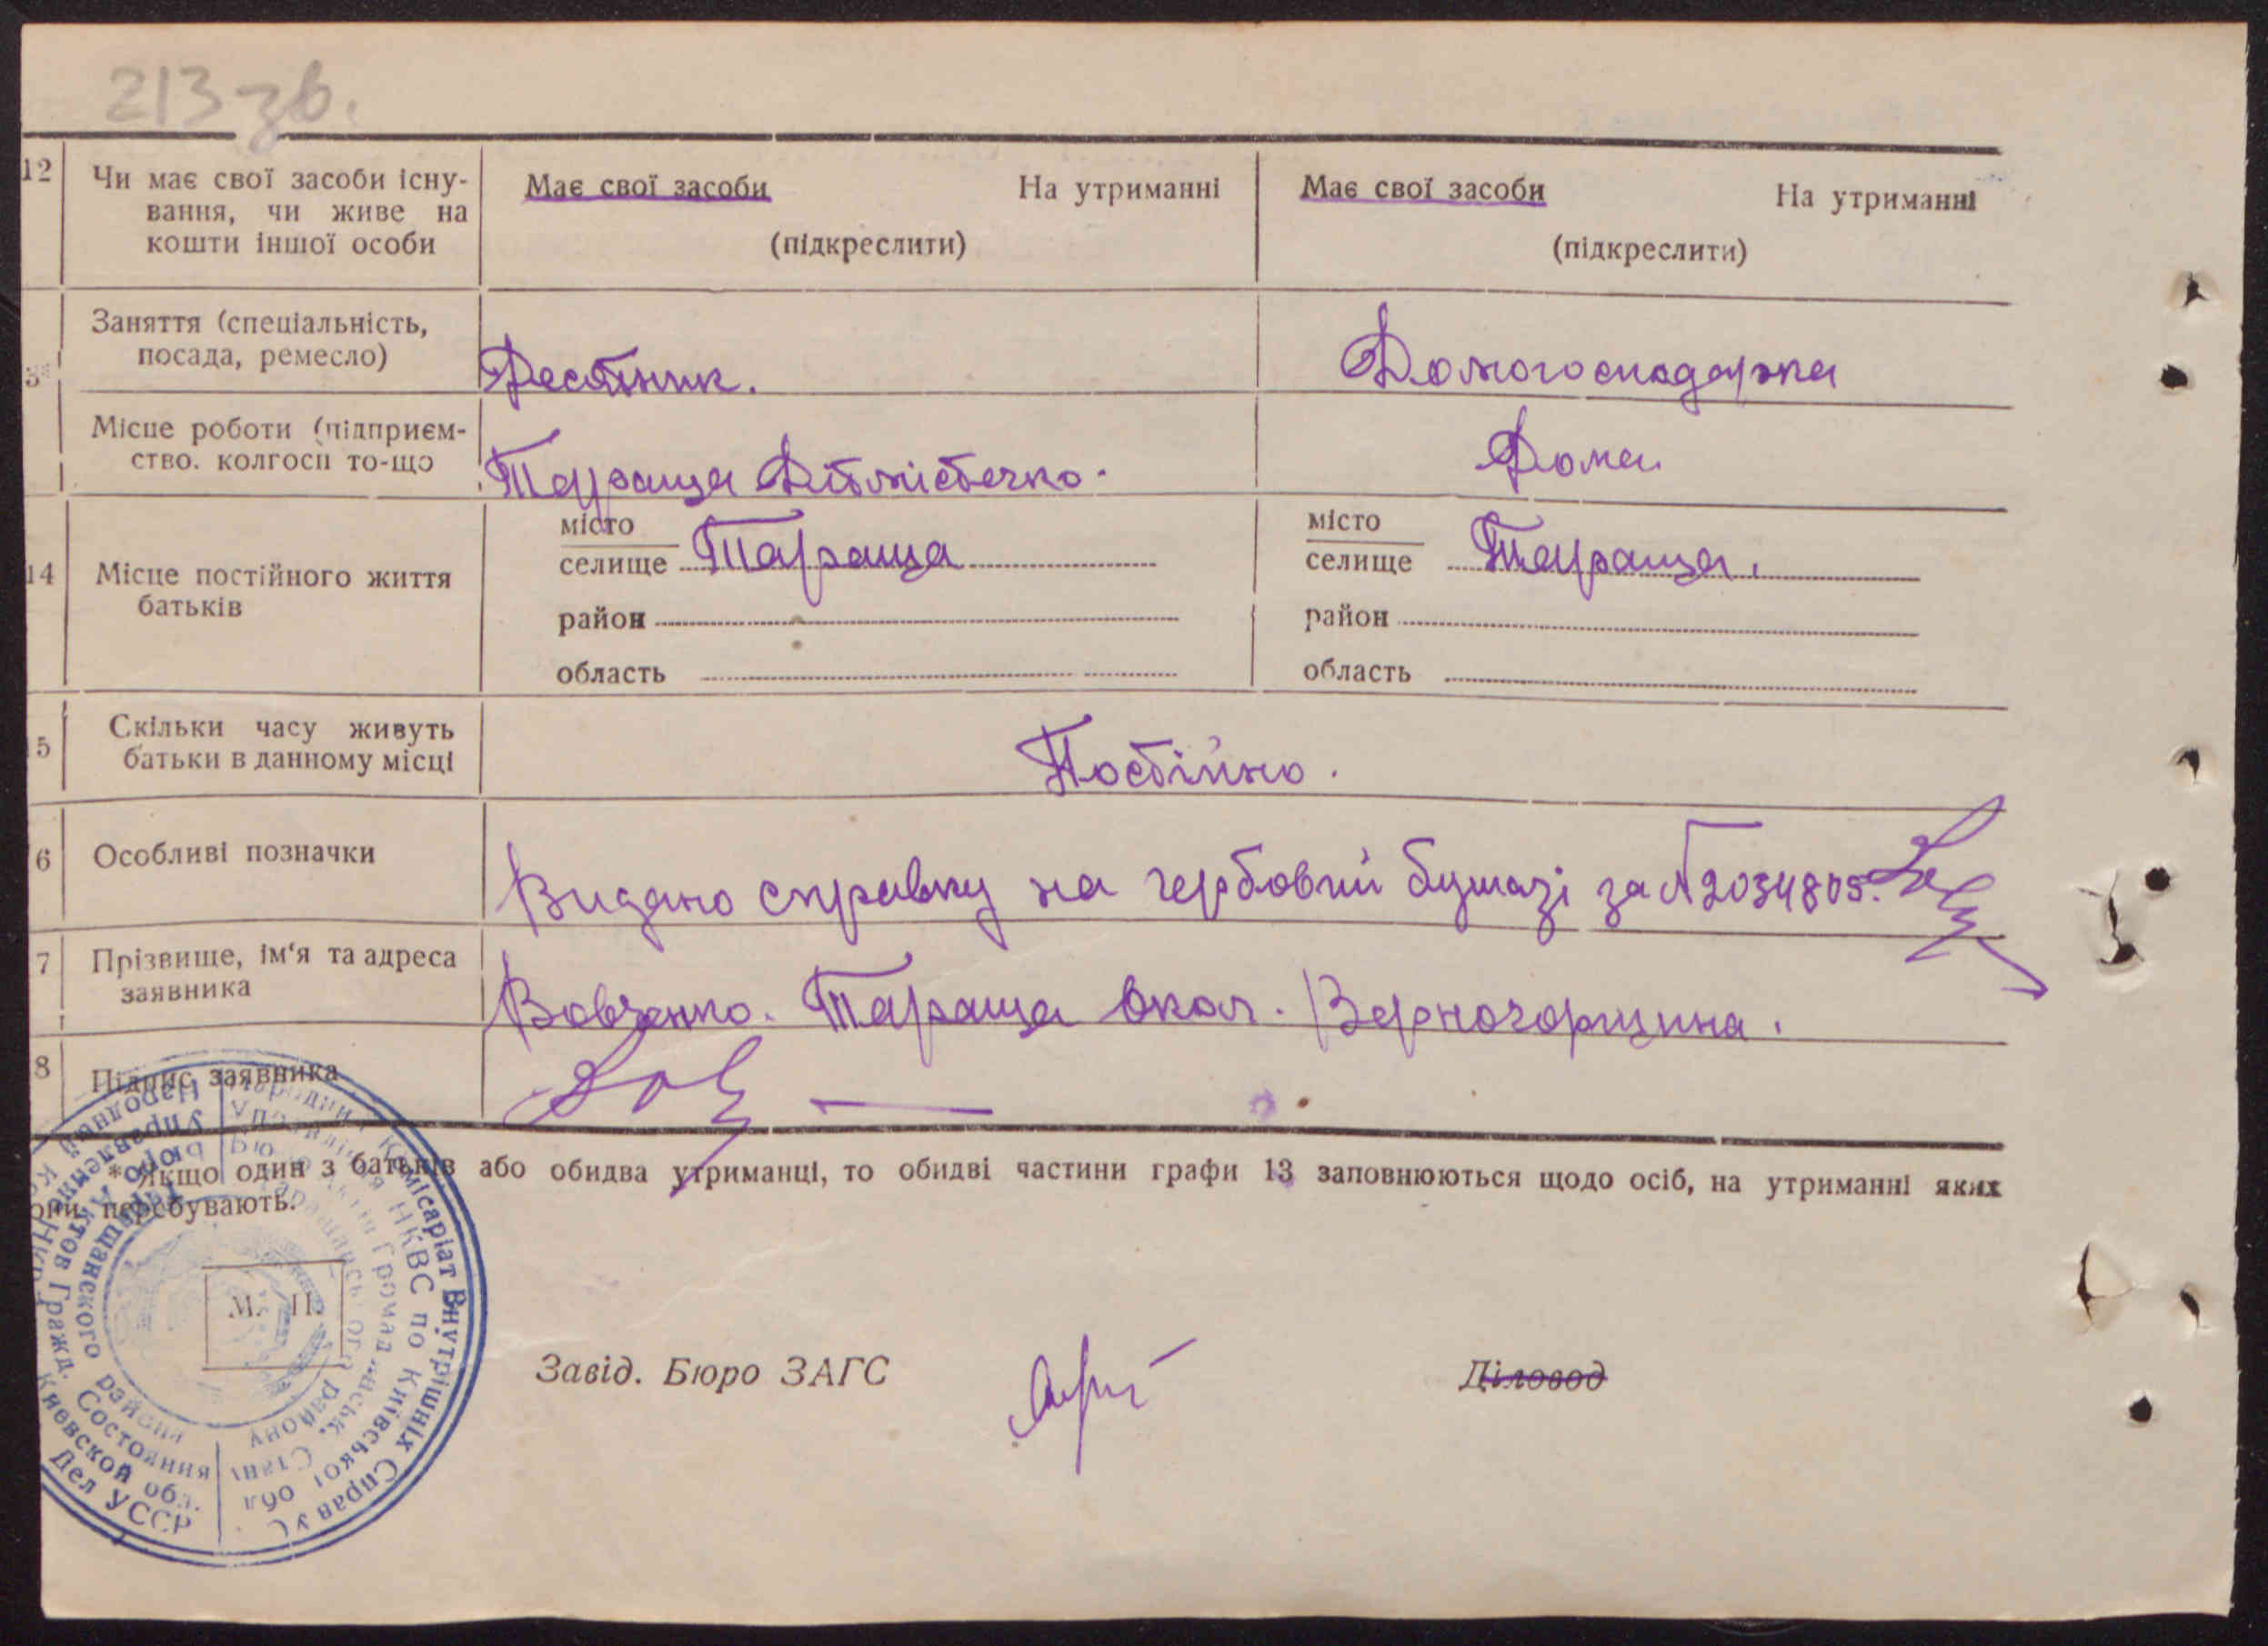 213 зв.
12 Чи має свої засоби існу-
вання, чи живе на
кошти іншої особи
Має свої засоби На утриманні
(підкреслити)
Має свої засоби На утриманні
(підкреслити)
Заняття (спеціальність,
посада, ремесло)
Десятник.
Домогосподарка
Місце роботи (підприєм-
ство. колгосп то-що
Тараща Дітмістечко.
Дома.
14 Місце постійного життя
батьків
місто
селище Тараща
район
область
місто
селище Тараща.
район
область
5 Скільки часу живуть
батьки в данному місці
Постійно.
6 Особливі позначки
Видано справку на гербовий бумазі за № 2034805.
7 Прізвище, ім'я та адреса
заявника
Вовченко. Тараща окол. Верногорщина.
8 Підпис заявника
* Якщо один з батьків або обидва утриманці, то обидві частини графи 13 заповнюються щодо осіб, на утриманні яких
они перебувають.
М. П.
Завід. Бюро ЗАГС
Діловод
Комісаріат Внутрішніх Справ УС
НКВС по Київської обл
Громадянськ. Стані
району
Народный
Управлени
Бюро Актов Гражд. Состояния
Таращанского района
Киевской обл.
Дел УССР